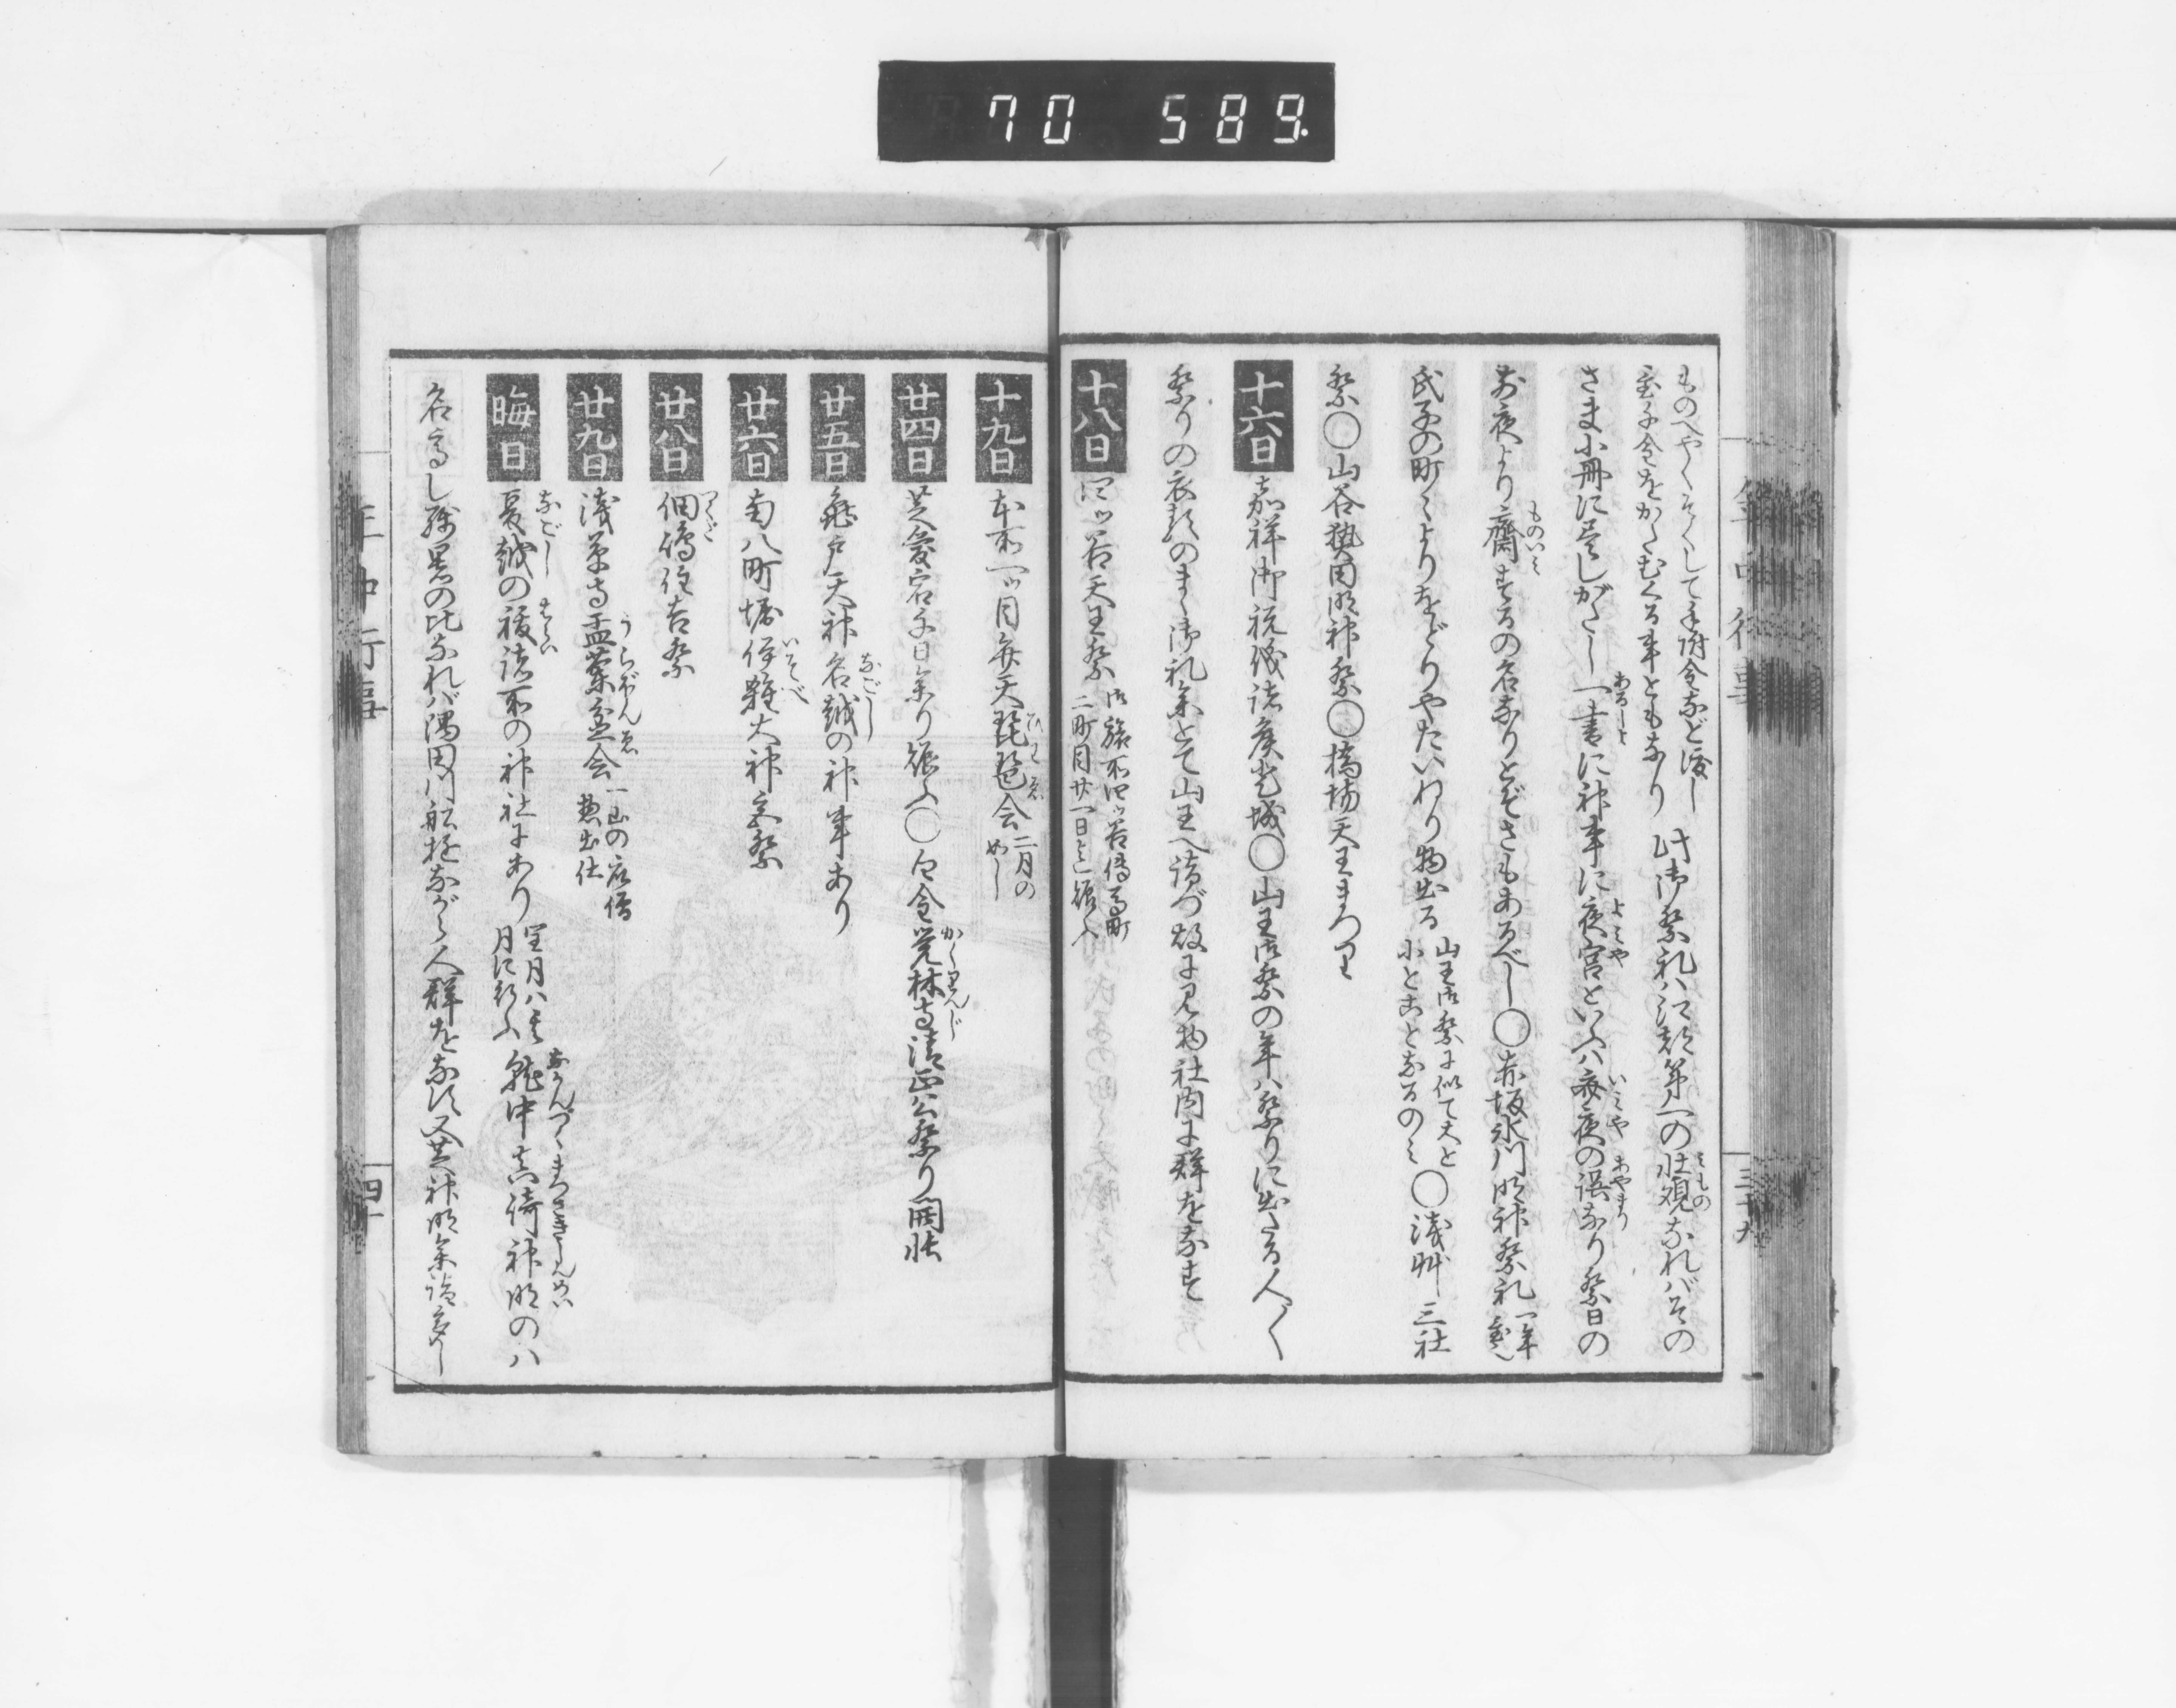 70 589.
ものへやくそくして手附金など渡し
至千金をかたむくる事ともなり
此御祭礼ハ江都第一の壮観なれバその
さま小冊に尽しがたし一書に神事に夜宮といふハ斎夜の誤なり祭日の
前夜より齋するの名なりとぞさもあるべし○赤坂氷川明神祭礼
氏子の町〻よりをどりやたいねり物出る
山王御祭に似て大と
小とことなるのミ
○浅艸三社
祭○山谷熱田明神祭○橋場天王まつり
十六日
嘉祥御祝儀諸侯登城○山王御祭の年ハ祭りに出たる人〴〵
祭りの衣類のまゝ御礼参とて山王へ詣づ故に見物社内に群をなす
十八日
四ツ谷天王祭
御旅所四ツ谷傳馬町
二町目廿一日迄賑ふ
十九日
本所一ツ目弁天琵琶会
二月の
如し
廿四日
芝愛宕千日参り賑ふ○白金覚林寺清正公祭り開帳
廿五日
亀戸天神名越の神事あり
廿六日
南八町堀伊雑太神宮祭
廿八日
佃嶋住吉祭
廿九日
浅草寺盂蘭盆会
一山の衆僧
惣出仕
晦日
夏越の祓諸所の神社にあり
月に行ふ
就中真崎神明のハ
名高し残暑の比なれバ隅田川舩遊ながら人群をなす又芝神明参詣多し
年中行事
三十九
年中行事
四十